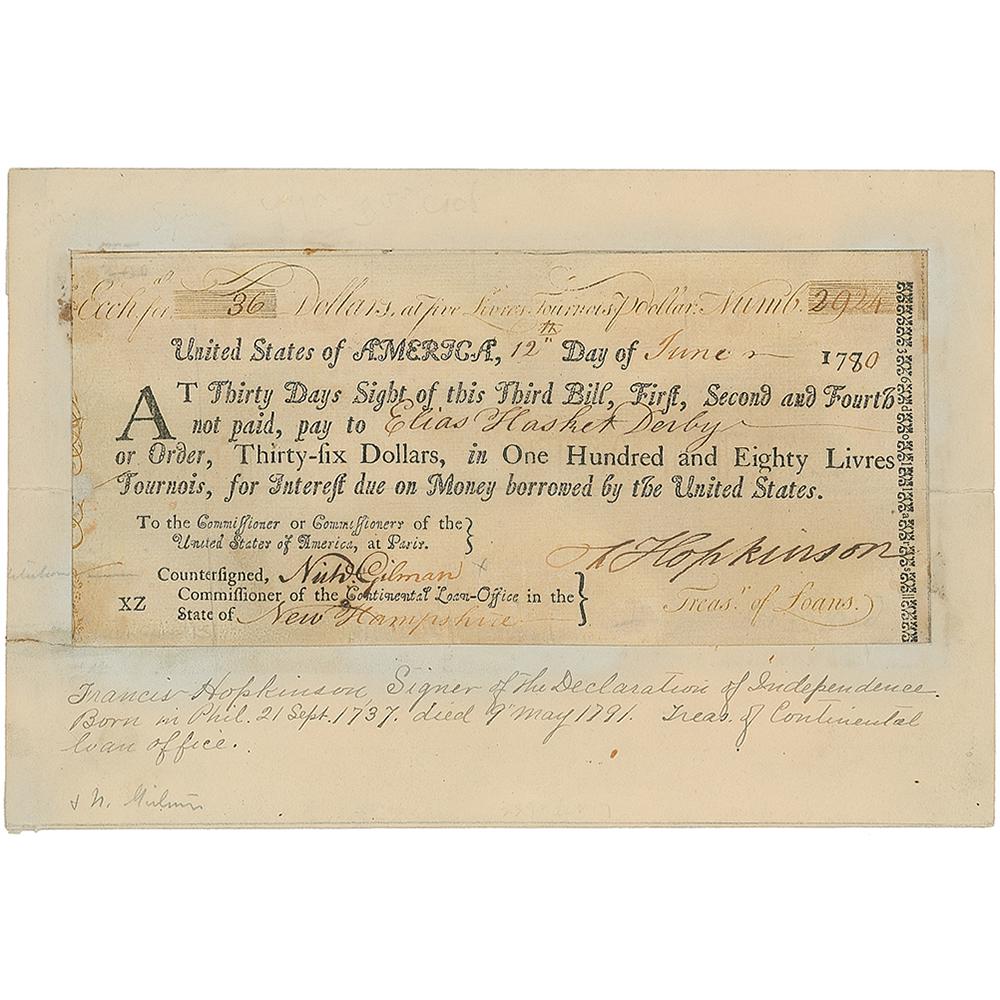 Exch. for 36 Dollars, at five Livres Tournois ⅌ Dollar. Numb. 2924
United States of AMERICA, 12th Day of June 1780
AT Thirty Days Sight of this Third Bill, First, Second and Fourth
not paid, pay to Elias Hasket Derby
or Order, Thirty-six Dollars, in One Hundred and Eighty Livres
Tournois, for Interest due on Money borrowed by the United States.
To the Commissioner or Commissioners of the
United States of America, at Paris.
F Hopkinson
Treasr. of Loans.
Countersigned, Nichs. Gilman
Commissioner of the Continental Loan-Office in the
State of New Hampshire
XZ
Francis Hopkinson, Signer of the Declaration of Independence.
Born in Phil. 21 Sept. 1737. died 9" May 1791. Treas. of Continental
loan office.
& N. Gilman